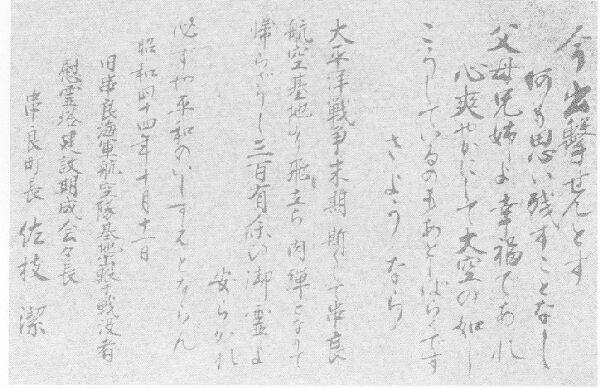 今出撃せんとす
何も思い残すことなし
父母兄姉よ幸福であれ
心爽やかにして大空の如し
こうしているのもあとしばらくです
さようなら
太平洋戦争末期斯くて串良
航空基地より飛立ち肉弾となりて
帰らざりし三百有余の御霊よ
安らかれ
必ずや平和のいしずえとならん
昭和四十四年十月十一日
旧串良海軍航空隊基地出撃戦没者
慰霊塔建設期成会々長
串良町長 佐枝 潔